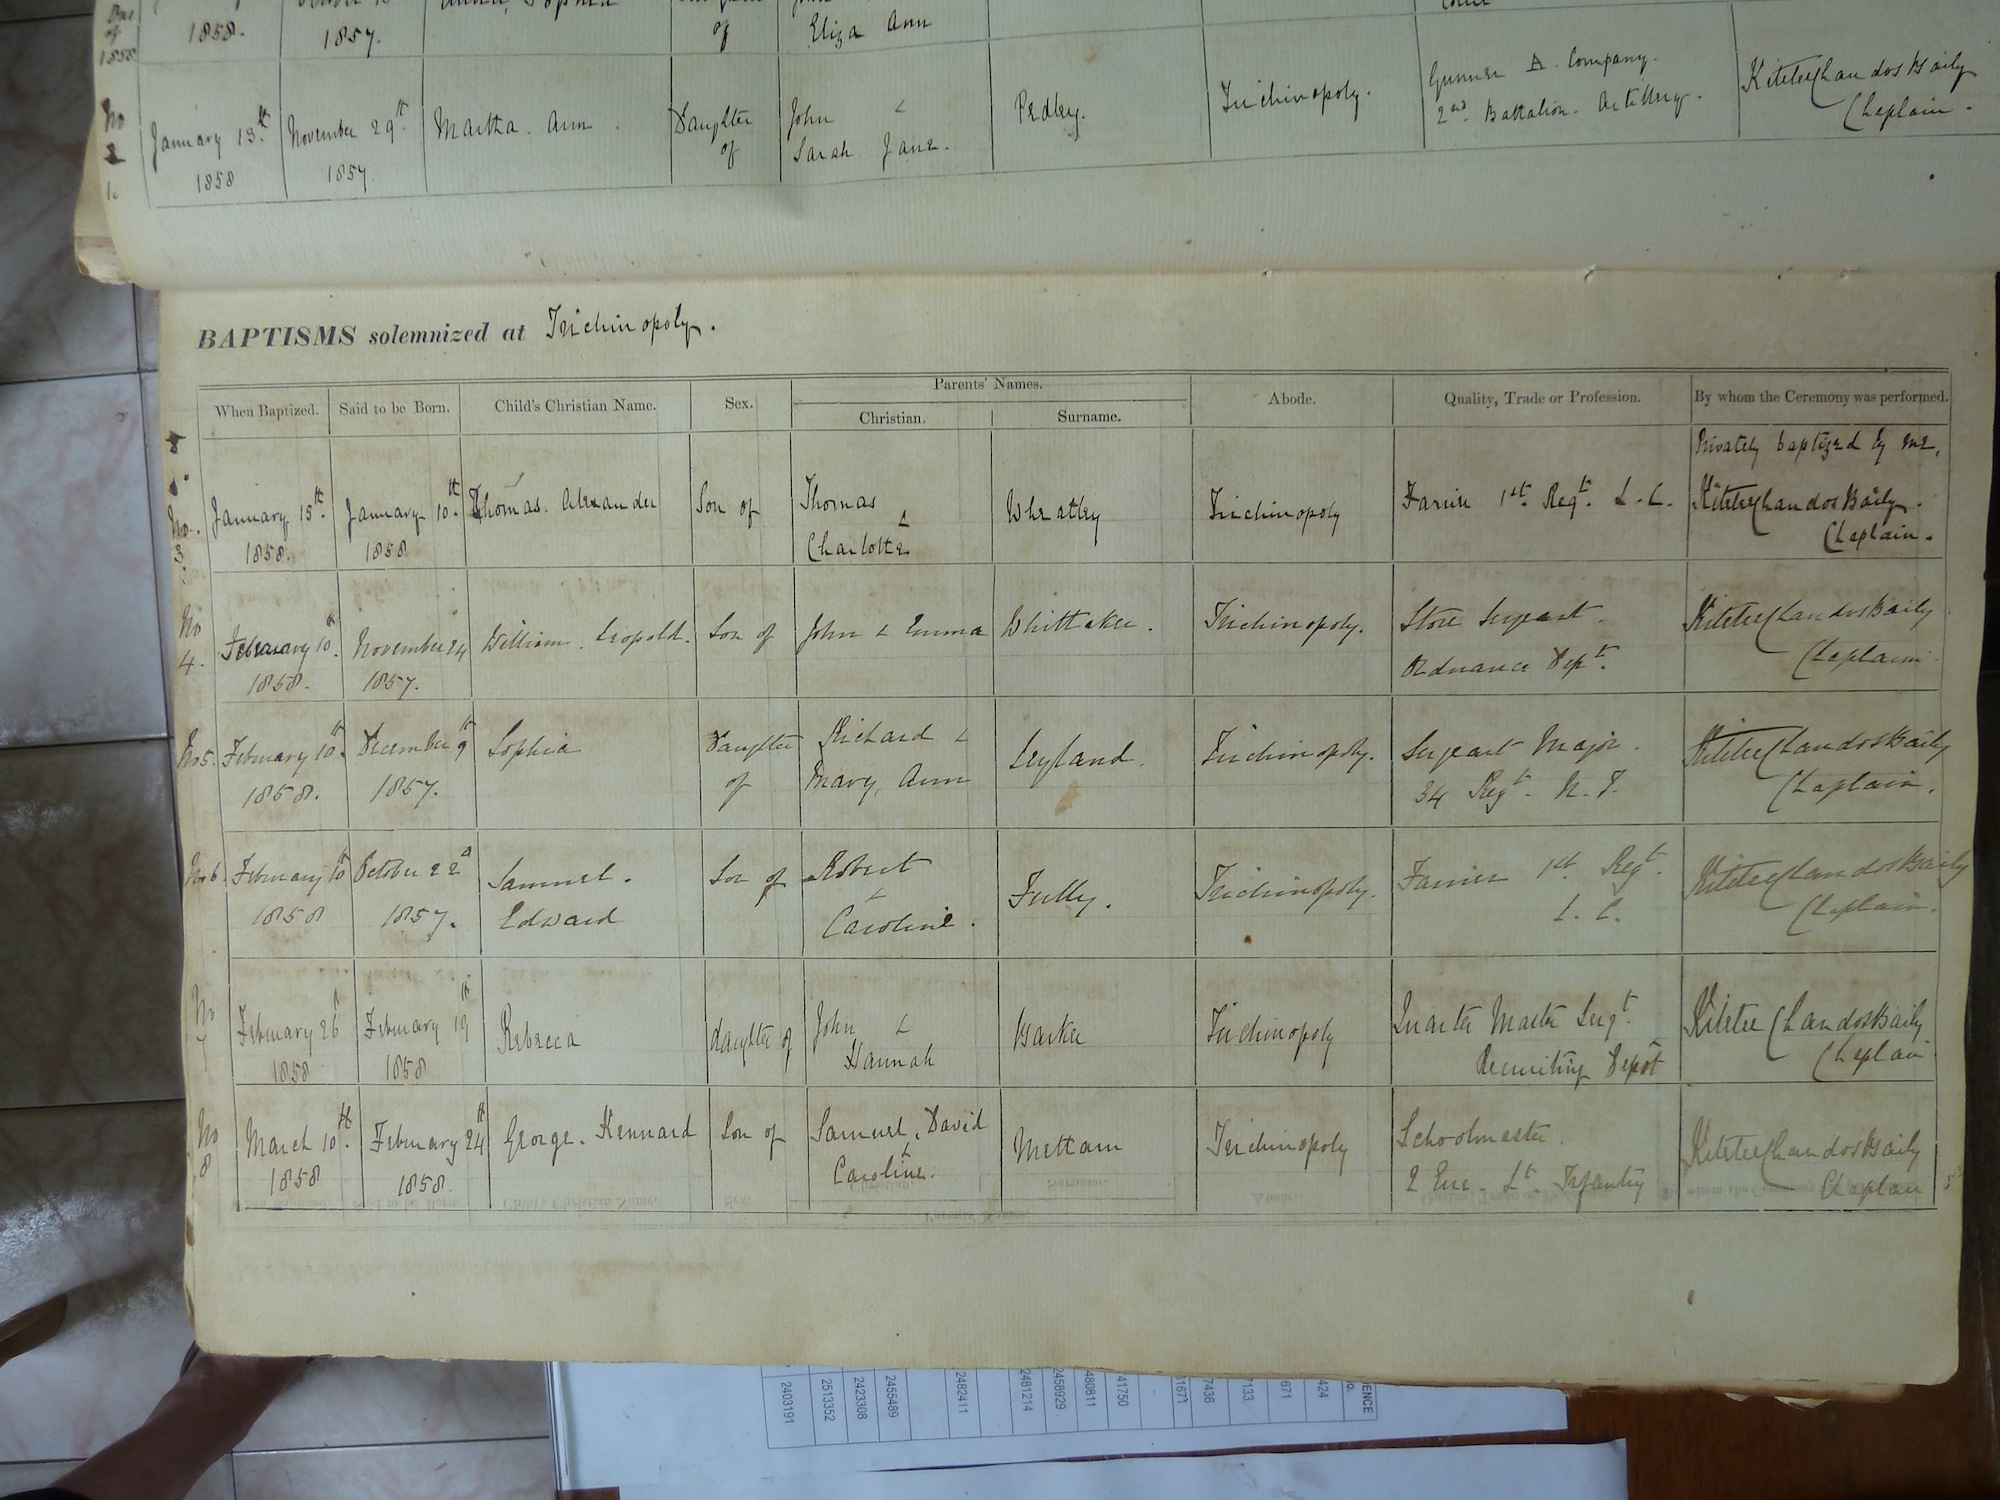 1858. 1857. of Eliza Ann
1858
No 2 January 13th November 29th. Martha. Ann. Daughter John & Pedley. Trichinopoly. Gunner A. Company. Kitelee Chandos Baily
1858 1857. of Sarah Jane. 2nd. Battalion. Artillery. Chaplain.
BAPTISMS solemnized at Trichinopoly.
Parents' Names.
When Baptized. Said to be Born. Child's Christian Name. Sex. Christian. Surname. Abode. Quality, Trade or Profession. By whom the Ceremony was performed.
Privately baptized by me,
No. 3. January 15th. January 10th. Thomas. Alexander Son of Thomas & Wheatley Trichinopoly Farrier 1st. Regt. L. C. Kitelee Chandos Baily.
1858. 1858 Charlotte Chaplain.
No 4. February 10th. November 24 William. Leopold. Son of John & Emma Whittaker. Trichinopoly. Store Sergeant. Kitelee Chandos Baily
1858. 1857. Ordnance Dept. Chaplain.
No 5. February 10th. December 9th Sophia Daughter Richard & Leyland. Trichinopoly. Sergeant Major. Kitelee Chandos Baily
1858. 1857. of Mary, Ann 34 Regt. N. I. Chaplain.
No 6. February 10th October 22d Samuel. Son of Robert & Fully. Trichinopoly. Farrier 1st. Regt. Kitelee Chandos Baily
1858 1857. Edward Caroline. L. C. Chaplain.
No 7 February 26 February 19th Rebecca daughter of John & Barker Trichinopoly Quarter Master Sergt. Kitelee Chandos Baily
1858 1858 Hannah Recruiting Depôt Chaplain
No 8 March 10th. February 24th George. Kennard Son of Samuel, David & Mettam Trichinopoly Schoolmaster. Kitelee Chandos Baily
1858 1858. Caroline. 2 Eur. Lt. Infantry Chaplain
2403191
2513352
2423308
2455489
2482411
2481214
2458929
480811
41750
7436
7133
671
424